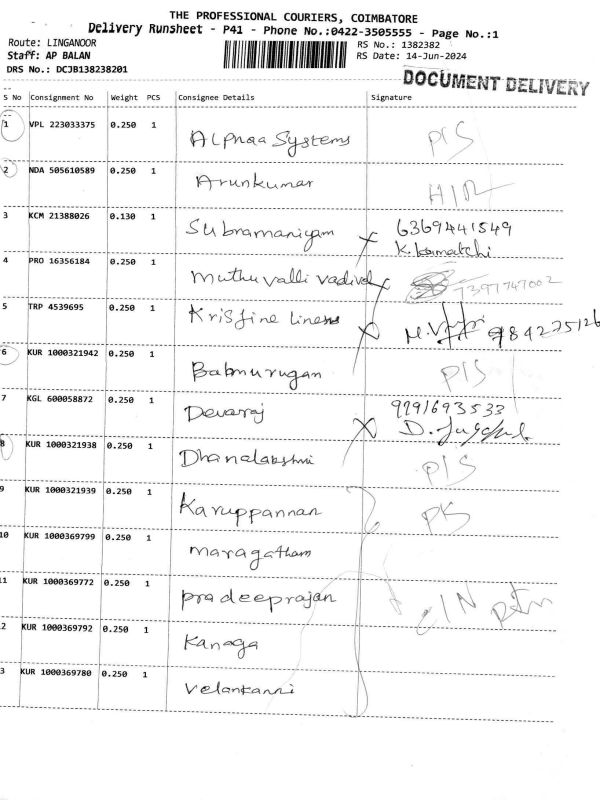 THE PROFESSIONAL COURIERS, COIMBATORE
Delivery Runsheet - P41 - Phone No.:0422-3505555 - Page No.:1
Route: LINGANOOR
RS No.: 1382382
Staff: AP BALAN
RS Date: 14-Jun-2024
DRS No.: DCJB138238201
DOCUMENT DELIVERY
S No Consignment No Weight PCS Consignee Details Signature
1 VPL 223033375 0.250 1 Alphaa Systems P/S
2 NDA 505610589 0.250 1 Arunkumar
3 KCM 21388026 0.130 1 Subramaniyam 6369441549
K. Kamatchi
4 PRO 16356184 0.250 1 Muthu Valli Vadivel 7397747002
5 TRP 4539695 0.250 1 Krisfine Linens
6 KUR 1000321942 0.250 1 Balmurugan P/S
7 KGL 600058872 0.250 1 Devaraj 9791693533
8 KUR 1000321938 0.250 1 Dhanalakshmi P/S
9 KUR 1000321939 0.250 1 Karuppannan
10 KUR 1000369799 0.250 1 maragatham
11 KUR 1000369772 0.250 1 pradeeprajan
2 KUR 1000369792 0.250 1 Kanaga
3 KUR 1000369780 0.250 1 Velankanni